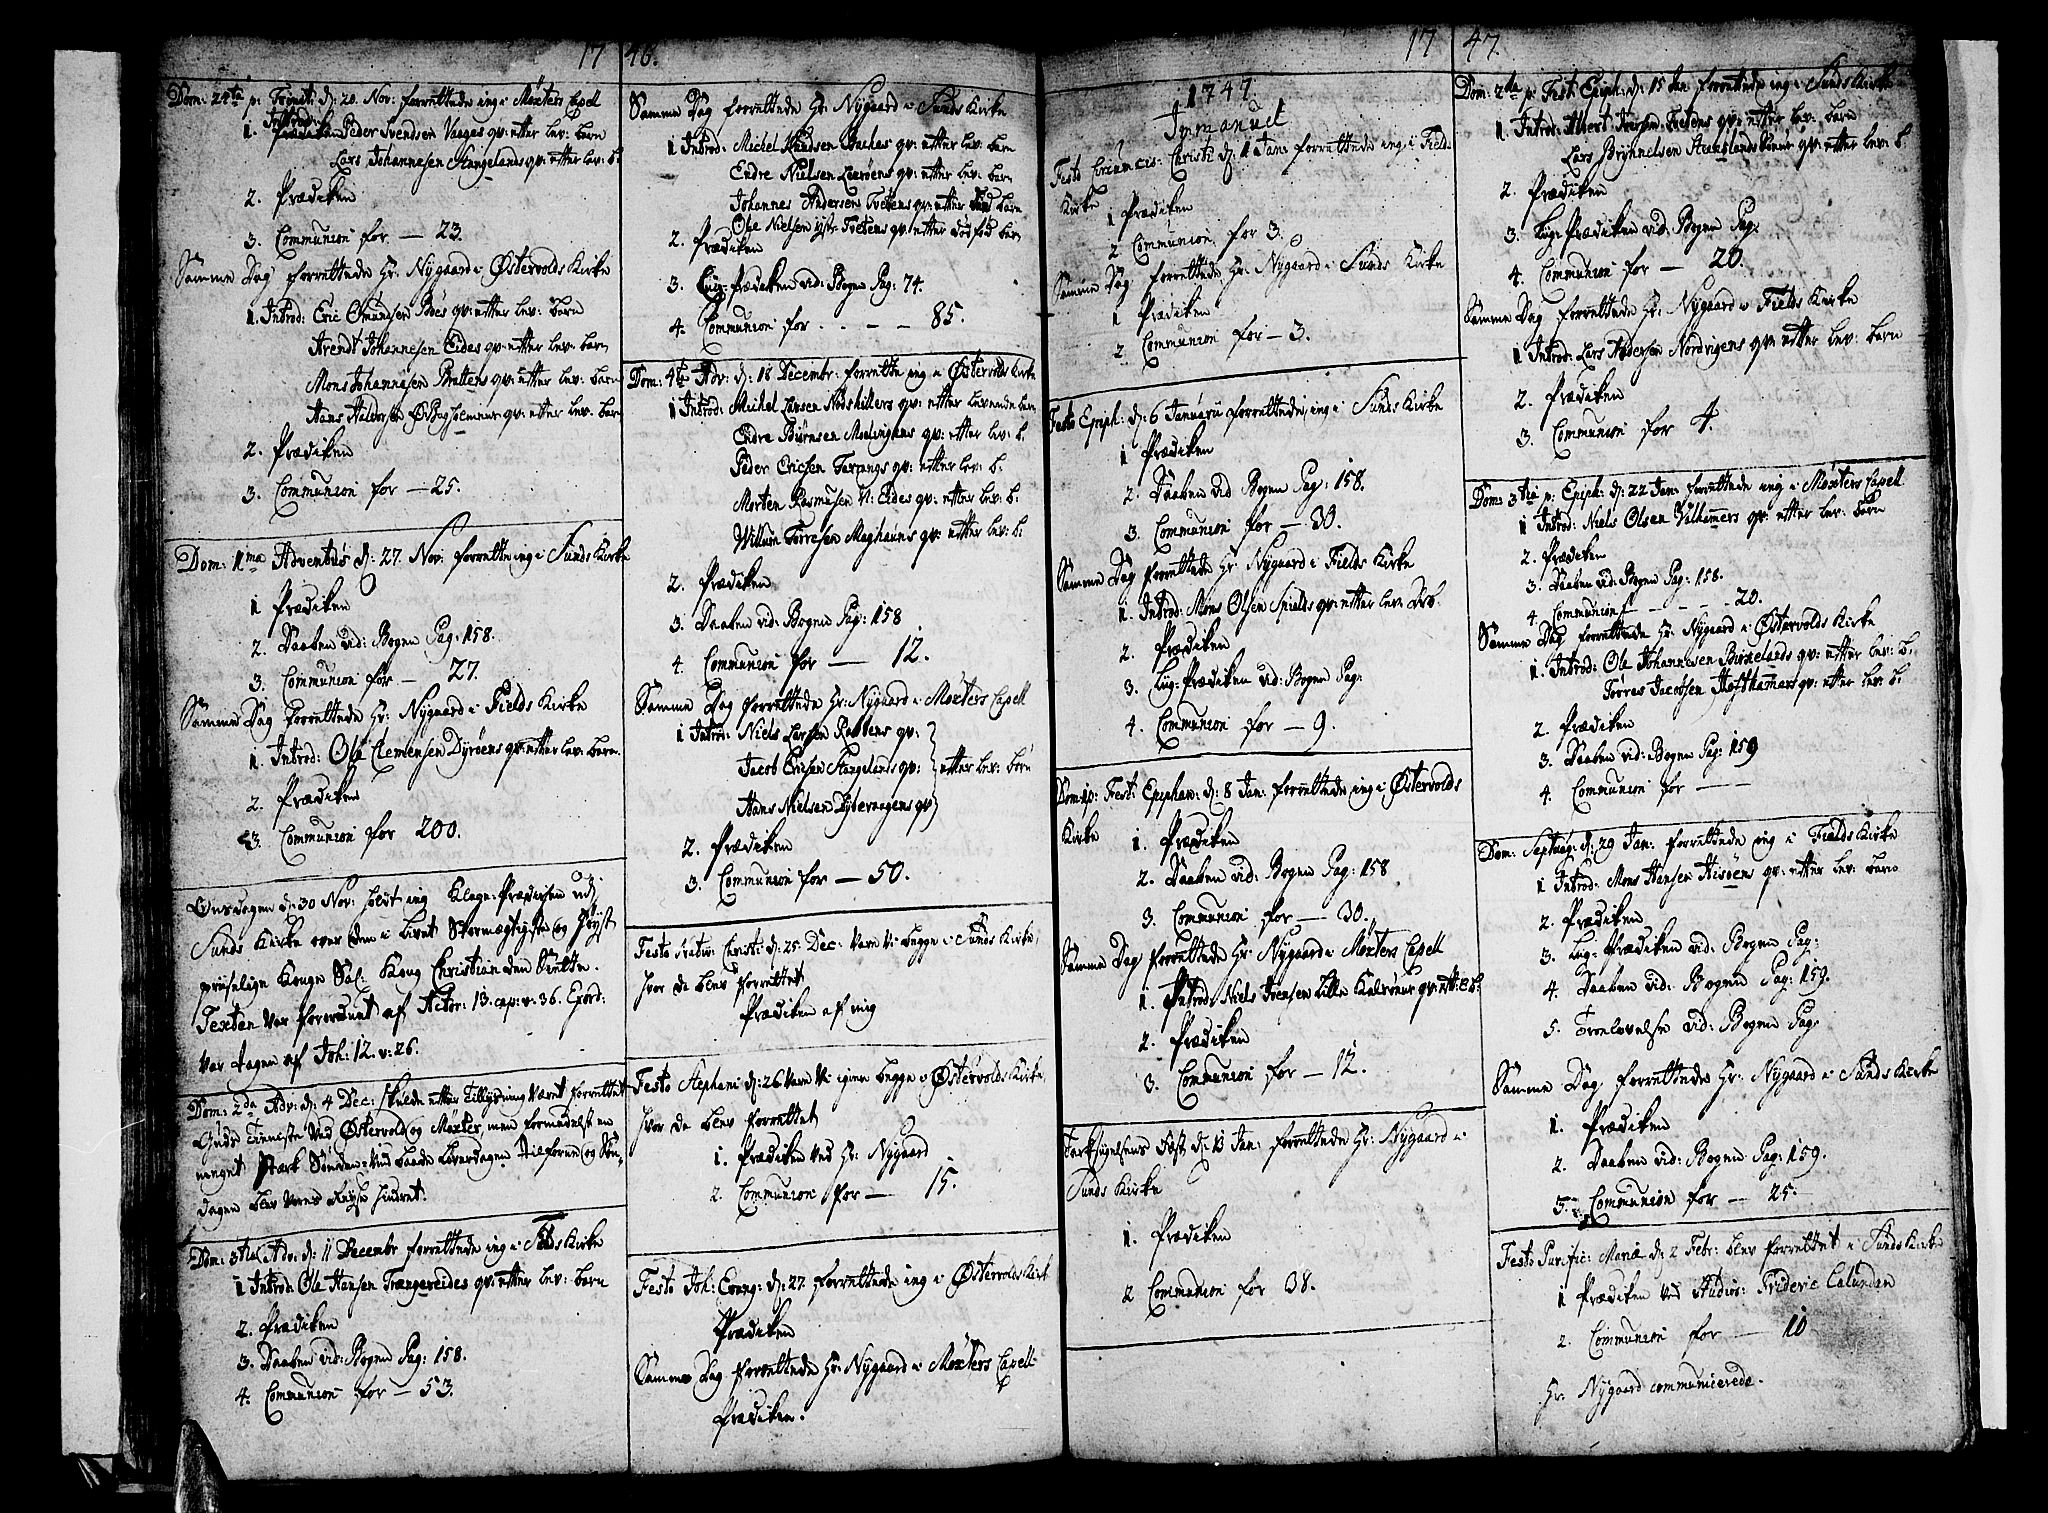 17 46.
Dom: 24ta p: Trinit: d: 20. Nov: forrettede ieg i Møxters Capell
1. Introd:
Peder Svendsen Vaages qv: etter lev: barn
Lars Johannesen Hangelands qv: etter lev: b:
2. Prædiken
3. Communion for — 23.
Samme Dag forrettede Hr: Nygaard i Østervolds Kirke
1. Introd: Eric Omundsen Bøes qv: etter lev: barn
Arendt Johannesen Eides qv: etter lev: barn
Mons Johannesen Brattens qv: etter lev: barn
Hans Haldorsen qv: etter lev: barn
2. Prædiken
3. Communion for — 25.
Dom: 1ma Adventus d: 27. Nov: forrettede ieg i Sunds Kirke
1 Prædiken
2. Daaben vid: Bogen Pag: 158.
3. Communion for — 27.
Samme Dag forrettede Hr: Nygaard i Fields Kirke
1. Introd: Ole Clemensen Dyrøens qv: etter lev: barn.
2. Prædiken
3. Communion for 200.
Onsdagen d: 30 Nov: holdt ieg Klage-Prædiken udj
Sunds Kirke over den i Livet Stormægtigste og Høyst
priiselige Konge Sal: Kong Christian den Siette.
Texten var forordnet af Actor: 13. cap: v: 36. Exord:
var tagen af Joh: 12. v: 26.
Dom: 2da Adv: d: 4 Dec: skulde etter Tillysning været forrettet
Guds Tieneste ved Østervold og Møxter, men formedelst en
meget stærk Sønden-Vind baade Løverdagen tilforne og Søn-
dagen blev vores Reyse hindret.
Dom: 3tia Adv: d: 11 Decembr forrettede ieg i Kirke
1 Introd: Ole Hansen Trængereides qv: etter lev: barn
2. Prædiken
3. Daaben vid: Bogen Pag: 158.
4. Communion for — 53.
Samme Dag forrettede Hr: Nygaard i Sunds Kirke
1 Introd: Michel Knudsen Backes qv: etter lev: barn
Endre Nielsen Leerøens qv: etter lev: barn
Johannes Andersen Tvetens qv: etter barn
Ole Nielsen ystr Tvetens qv: etter dødfød barn
2. Prædiken
3. Liig-Prædiken vid: Bogen Pag: 74.
4. Communion for . . — — 85.
Dom: 4ta Adv: d: 18 Decembr: forrette ieg i Østervolds Kirke
1 Introd: Michel Larsen qv: etter levende barn
Endre Biørnsen Møelingens qv: etter lev: b.
Peder Ericsen Tarangs qv: etter lev: b.
Morten Rasmusen N: Eides qv: etter lev: b.
Willum Torresen Maghauns qv: etter lev: b.
2. Prædiken
3. Daaben vid: Bogen Pag: 158
4. Communion for — 12.
Samme Dag forrettede Hr: Nygaard i Møxters Capell
1 Introd: Niels Larsen qv:
Jacob Ericsen Hangelands qv: etter lev: børn
Hans Nielsen Dybevaagens qv
2. Prædiken
3. Communion for — 50.
Festo Nativ: Christi d: 25. Dec: Vare Vi begge i Sunds Kirke,
hvor da blev forrettet
Prædiken af mig
Festo Stephani d: 26 Vare Vi igien begge i Østervolds Kirke,
hvor da blev forrettet
1. Prædiken ved Hr: Nygaard
2. Communion for — 15.
Festo Joh: Evang: d: 27. forrettede ieg i Østervolds Kirke
Prædiken
Samme Dag forrettede Hr: Nygaard i Møxters Capell
Prædiken.
17 47.
1747
Immanuel
Festo Circumcis: Christi d: 1 Jan: forrettede ieg i Fields
Kirke
1 Prædiken
2 Communion for 3.
Samme Dag forrettede Hr: Nygaard i Sunds Kirke
1 Prædiken
2 Communion for — 3.
Festo Epiph: d: 6 Januarii forrettede ieg i Sunds Kirke
1 Prædiken
2. Daaben vid Bogen Pag: 158.
3. Communion for — 30.
Samme Dag forrettede Hr: Nygaard i Fields Kirke
1. Introd: Mons Olsen Spields qv: etter lev: Drb.
2. Prædiken
3. Liig-Prædiken vid: Bogen Pag:
4. Communion for — 9.
Dom: 1 p: Fest: Epiphan: d: 8 Jan: forrettede ieg i Østervolds
Kirke
1. Prædiken
2. Daaben vid: Bogen Pag: 158
3. Communion for — 30.
Samme Dag forrettede Hr: Nygaard i Møxters Capell
1. Introd: Niels Iversen Lille Kalsøens qv: ett: L: b:
2. Prædiken
3. Communion for — 12.
Tacksigelsens Fest d: 13 Jan: forrettede Hr: Nygaard i
Sunds Kirke
1. Prædiken
2 Communion for 38.
Dom: 2da p: Fest: Epiph: d: 15 Jan: forrettede ieg i Sunds Kirke
1 Introd: Albert Iversen Tvetens qv: etter lev: barn
Lars Brynnelsen qv: etter lev: b.
2. Prædiken
3. Liig-Prædiken vid: Bogen Pag:
4. Communion for — 20.
Samme Dag forrettede Hr: Nygaard i Fields Kirke
1 Introd: Lars Andersen Nordvigens qv: etter lev: barn
2. Prædiken
3. Communion for 4.
Dom: 3tia p: Epiph: d: 22 Jan: forrettede ieg i Møxters Capell
1 Introd: Niels Olsen Valhammers qv: etter lev: barn
2. Prædiken
3. Daaben vid: Bogen Pag: 158.
4. Communion f — — — — 20.
Samme Dag forrettede Hr: Nygaard i Østervolds Kirke
1. Introd: Ole Johannesen Birkelands qv: etter lev: b.
Torres Jacobsen Hofthammers qv: etter lev: b.
2. Prædiken
3. Daaben vid: Bogen Pag: 159
4. Communion for — —
Dom: Septuag: d: 29 Jan: forrettede ieg i Fields Kirke
1 Introd: Mons Hansen Hisøens qv: etter lev: barn
2. Prædiken
3. Liig-Prædiken vid: Bogen Pag:
4. Daaben vid: Bogen Pag: 159.
5. Trolovelse vid: Bogen Pag:
Samme Dag forrettede Hr: Nygaard i Sunds Kirke
1. Prædiken
2. Daaben vid: Bogen Pag: 159.
3. Communion for — 25.
Festo Purific: Mariæ d: 2 Febr: blev forrettet i Sunds Kirke
1 Prædiken ved Studios: Frideric Calundan
2. Communion for — 10
Hr: Nygaard communicerede.